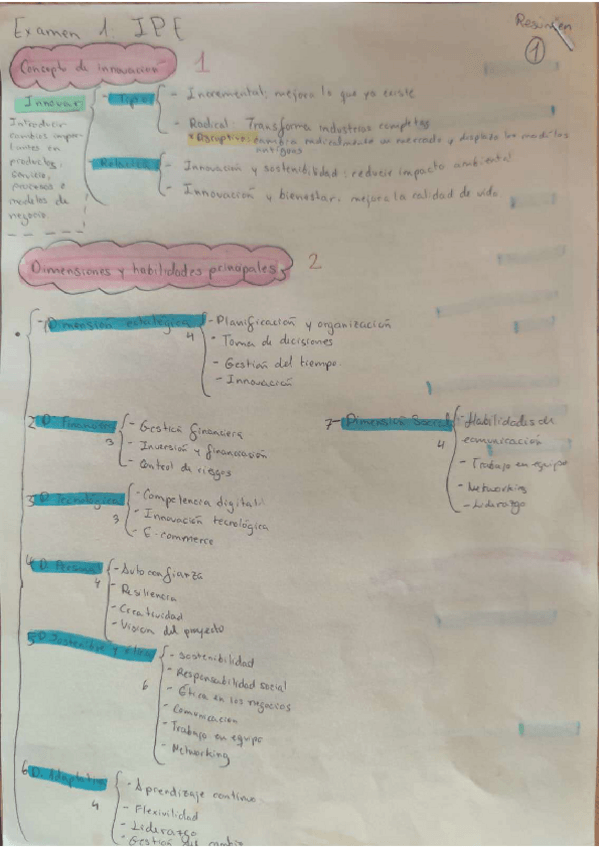 Examen 1: IPE
Resumen
1
Concepto de innovación 1
Innovar
Introducir
cambios impor-
tantes en
productos,
servicio,
procesos o
modelos de
negocio.
- Tipos
- Incremental: mejora lo que ya existe
- Radical: Transforma industrias completas
* Disruptiva: cambia radicalmente un mercado y desplaza los modelos
antiguos
- Relación
- Innovación y sostenibilidad: reducir impacto ambiental
- Innovación y bienestar: mejora la calidad de vida
Dimensiones y habilidades principales 2
1 Dimensión estratégica 4
- Planificación y organización
- Toma de decisiones
- Gestión del tiempo.
- Innovación
2 D. Financiera 3
- Gestión financiera
- Inversión y financiación
- Control de riesgos
3 D. Tecnológica 3
- Competencia digital
- Innovación tecnológica
- E-commerce
4 D. Personal 4
- Autoconfianza
- Resiliencia
- Creatividad
- Visión del proyecto
5 D. Sostenible y ética 6
- Sostenibilidad
- Responsabilidad social
- Ética en los negocios
- Comunicación
- Trabajo en equipo
- Networking
6 D. Adaptativa 4
- Aprendizaje continuo.
- Flexivilidad
- Liderazgo
- Gestión del cambio
7- Dimensión Social 4
- Habilidades de
comunicación
- Trabajo en equipo
- Networking
- Liderazgo